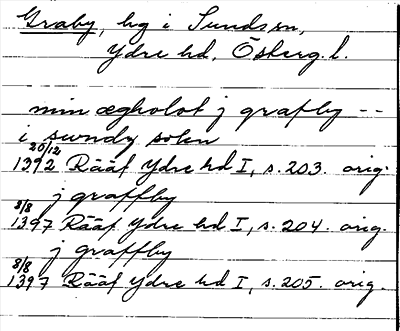 Graby, hg i Sunds sn,
Ydre hd, Österg. l.
min ægholot j grafby --
i sundz sokn
20/12
1392 Rääf Ydre hd I, s. 203. orig.
j graffby
8/8
1397 Rääf Ydre hd I, s. 204. orig.
j graffby
8/8
1397 Rääf Ydre hd I, s. 205. orig.